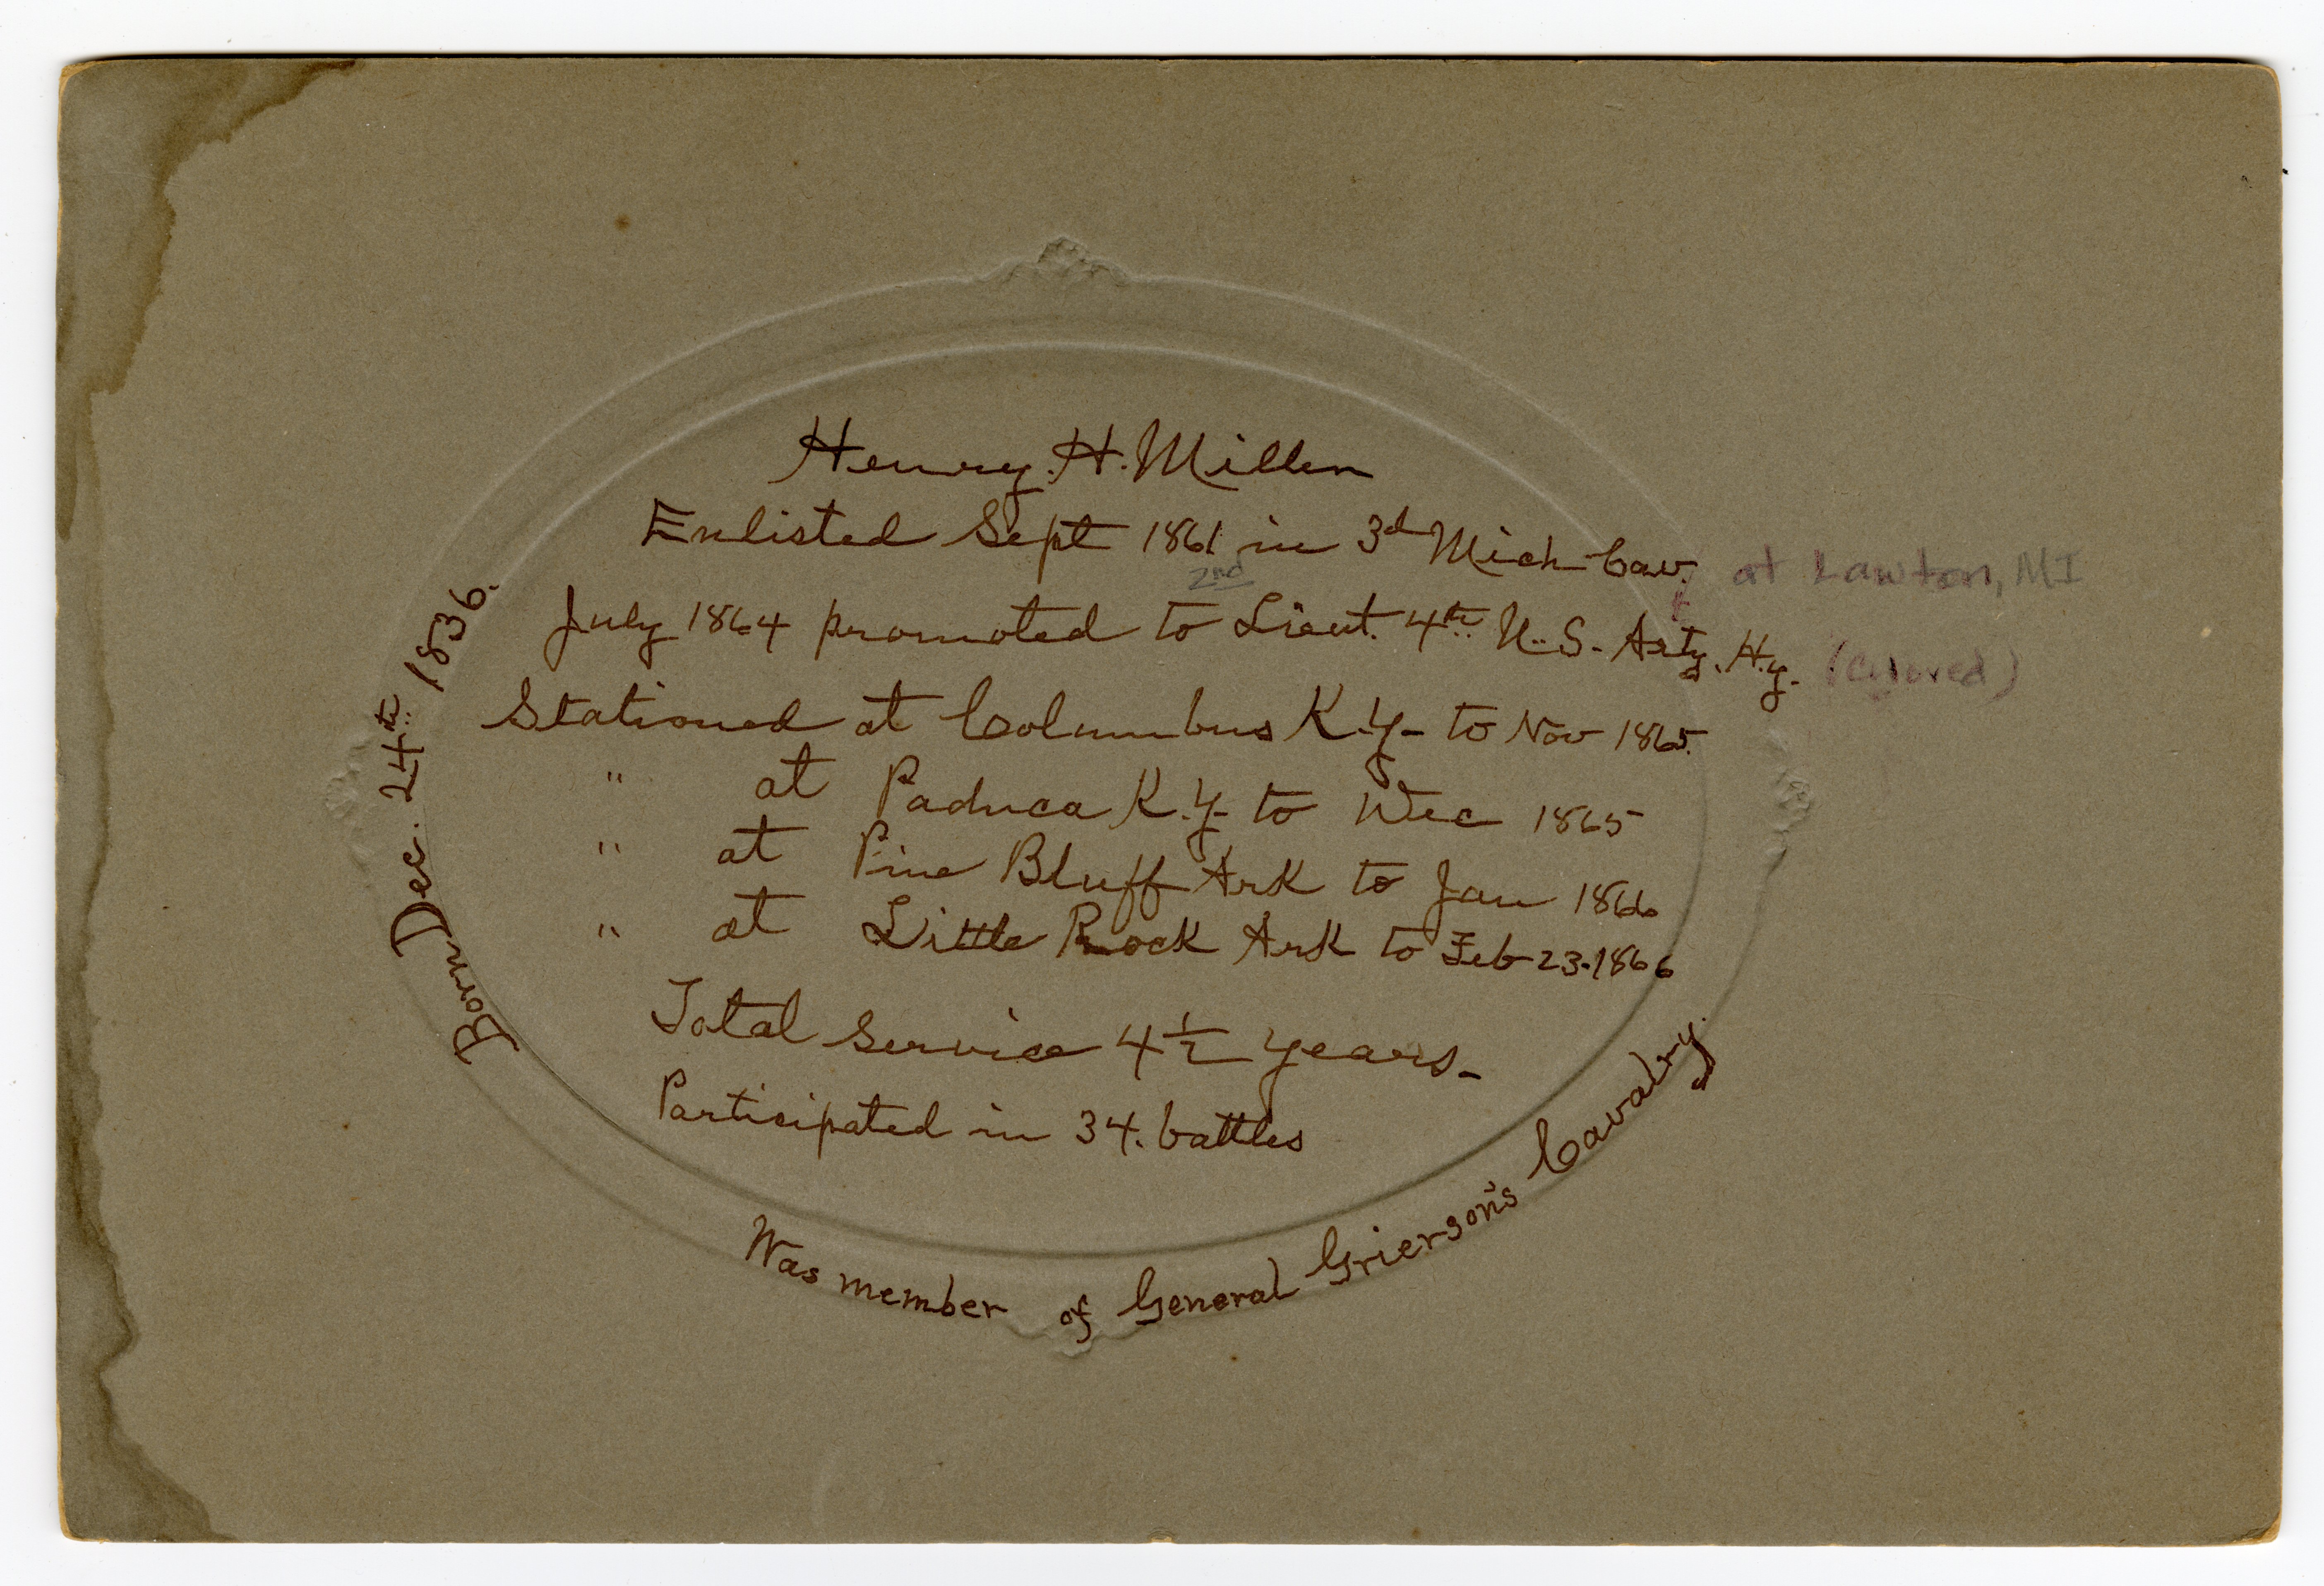 Henry. H. Miller
Enlisted Sept 1861 in 3d Mich Cav. at Lawton, MI
2nd
July 1864 promoted to Lieut. 4th U.S. Arty. Hy. (Colored)
Stationed at Columbus K.Y. to Nov 1865.
" at Paduca K.Y. to Dec 1865
" at Pine Bluff Ark to Jan 1866
" at Little Rock Ark to Feb 23. 1866
Total Service 4 1/2 years.
Participated in 34. battles
Born Dec. 24th 1836.
Was member of General Grierson's Cavalry.